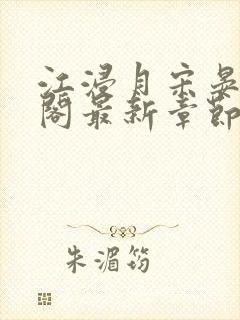 江浸月宋晏
阁最新章节
朱湄筠